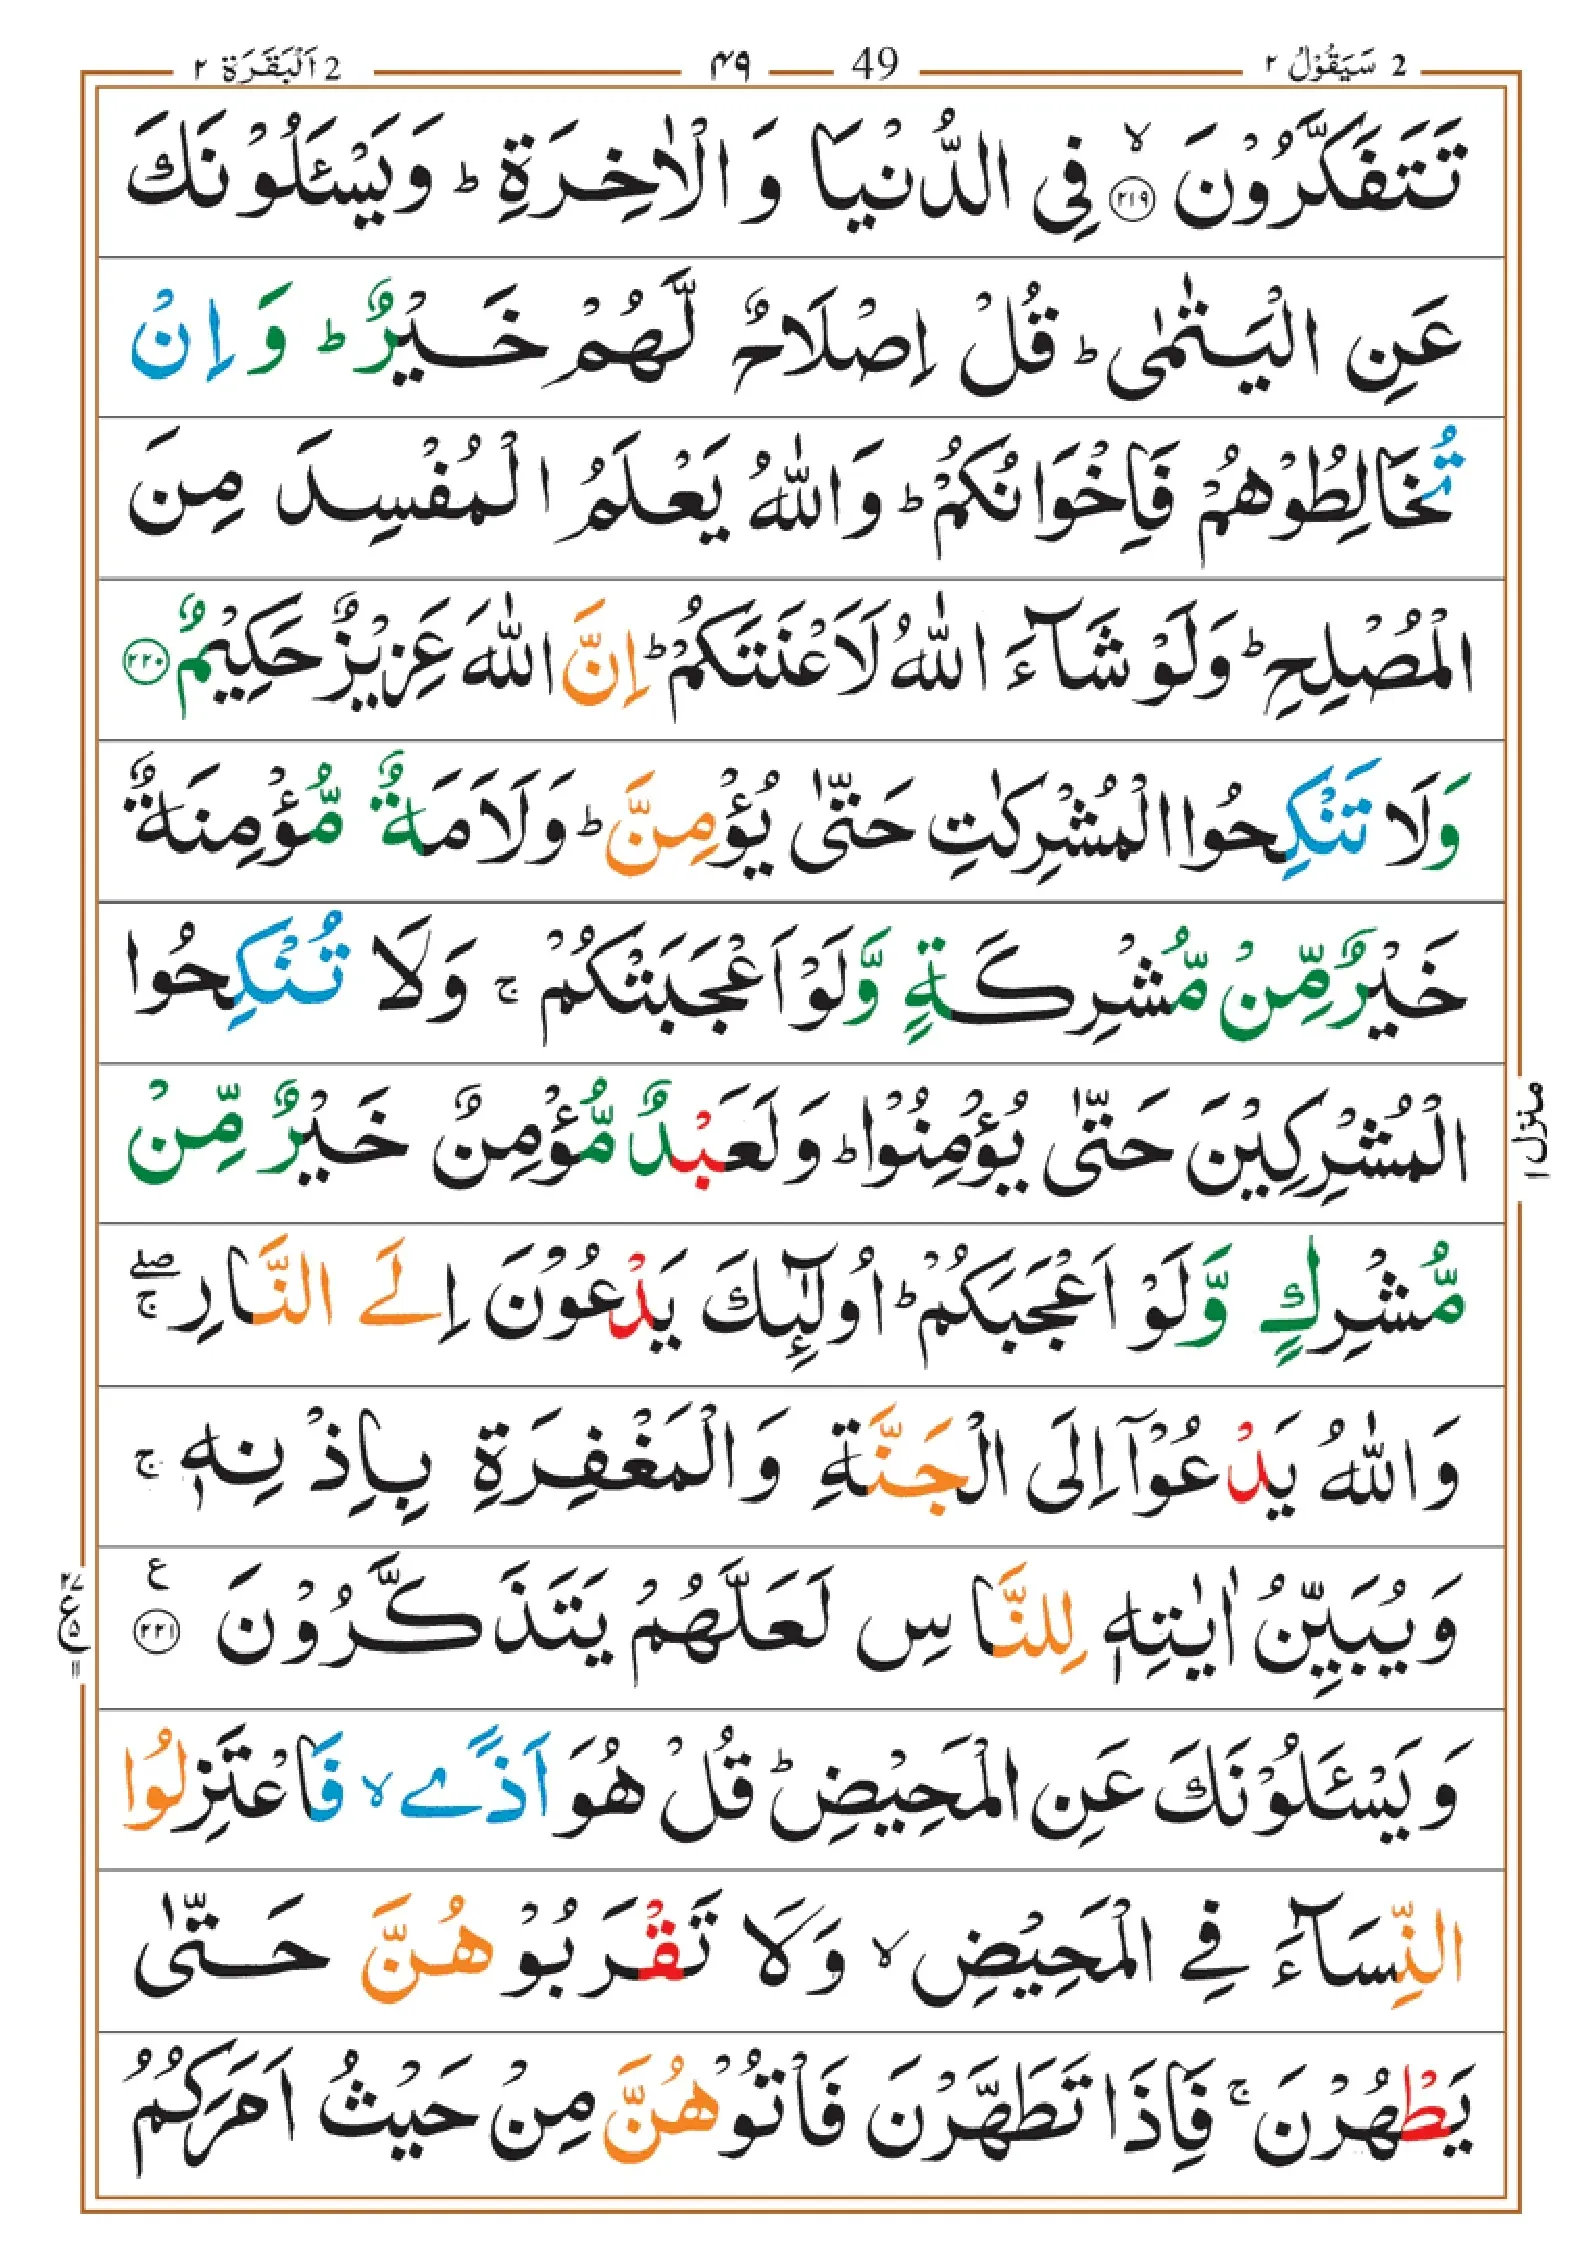 2 سَيَقُوْلُ ٢ 49 ٤٩ 2 اَلْبَقَرَة ٢
تَتَفَكَّرُوْنَ ۙ﴿٢١٩﴾ فِى الدُّنْيَا وَ الْاٰخِرَةِ ؕ وَيَسْـَٔلُوْنَكَ
عَنِ الْيَتٰمٰى ؕ قُلْ اِصْلَاحٌ لَّهُمْ خَيْرٌ ؕ وَ اِنْ
تُخَالِطُوْهُمْ فَاِخْوَانُكُمْ ؕ وَاللّٰهُ يَعْلَمُ الْمُفْسِدَ مِنَ
الْمُصْلِحِ ؕ وَلَوْ شَآءَ اللّٰهُ لَاَعْنَتَكُمْ ؕ اِنَّ اللّٰهَ عَزِيْزٌ حَكِيْمٌ ﴿٢٢٠﴾
وَلَا تَنْكِحُوا الْمُشْرِكٰتِ حَتّٰى يُؤْمِنَّ ؕ وَلَاَمَةٌ مُّؤْمِنَةٌ
خَيْرٌ مِّنْ مُّشْرِكَةٍ وَّلَوْ اَعْجَبَتْكُمْ ۚ وَلَا تُنْكِحُوا
الْمُشْرِكِيْنَ حَتّٰى يُؤْمِنُوْا ؕ وَلَعَبْدٌ مُّؤْمِنٌ خَيْرٌ مِّنْ
مُّشْرِكٍ وَّلَوْ اَعْجَبَكُمْ ؕ اُولٰٓئِكَ يَدْعُوْنَ اِلَى النَّارِ ۖۚ
وَاللّٰهُ يَدْعُوْٓا اِلَى الْجَنَّةِ وَالْمَغْفِرَةِ بِاِذْنِهٖ ۚ
وَيُبَيِّنُ اٰيٰتِهٖ لِلنَّاسِ لَعَلَّهُمْ يَتَذَكَّرُوْنَ ﴿٢٢١﴾ ع
وَيَسْـَٔلُوْنَكَ عَنِ الْمَحِيْضِ ؕ قُلْ هُوَ اَذًى ۙ فَاعْتَزِلُوا
النِّسَآءَ فِى الْمَحِيْضِ ۙ وَلَا تَقْرَبُوْهُنَّ حَتّٰى
يَطْهُرْنَ ۚ فَاِذَا تَطَهَّرْنَ فَاْتُوْهُنَّ مِنْ حَيْثُ اَمَرَكُمُ
منزل ١
٢٧
ع ٥
١١